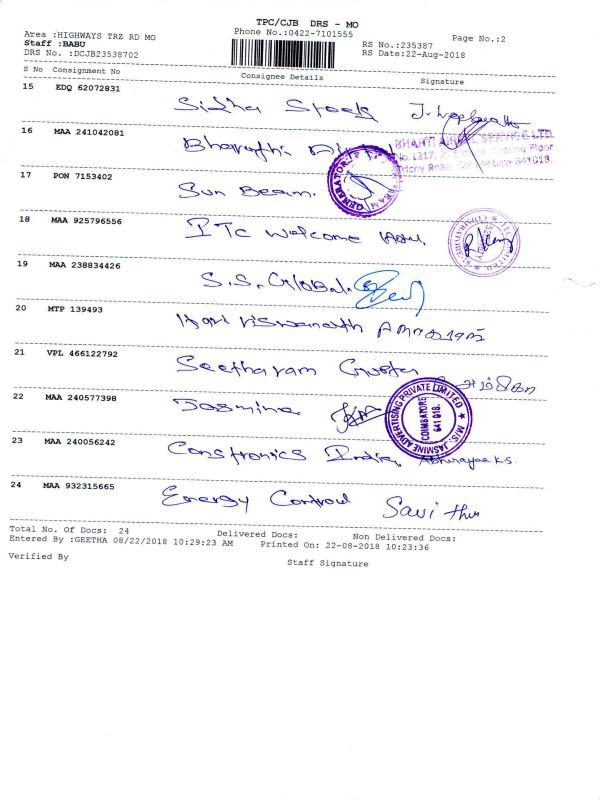 TPC/CJB DRS - MO
Area :HIGHWAYS TRZ RD MO
Phone No.:0422-7101555
Page No.:2
Staff :BABU
RS No.:235387
DRS No. :DCJB23538702
RS Date:22-Aug-2018
S No Consignment No Consignee Details Signature
15 EDQ 62072831
Sidha
16 MAA 241042081
Bharathi Airtel
BHARTI AIRTEL SERVICE LTD
17 PON 7153402
Sun Beam.
18 MAA 925796556
ITC Welcome Hotel
19 MAA 238834426
S.S. Global.
20 MTP 139493
21 VPL 466122792
Seetharam
22 MAA 240577398
Jasmine
M/S. JASMINE ADVERTISING PRIVATE LIMITED
COIMBATORE
641 018.
23 MAA 240056242
Constronics India
24 MAA 932315665
Energy Control Savithri
Total No. Of Docs: 24 Delivered Docs: Non Delivered Docs:
Entered By :GEETHA 08/22/2018 10:29:23 AM Printed On: 22-08-2018 10:23:36
Verified By
Staff Signature